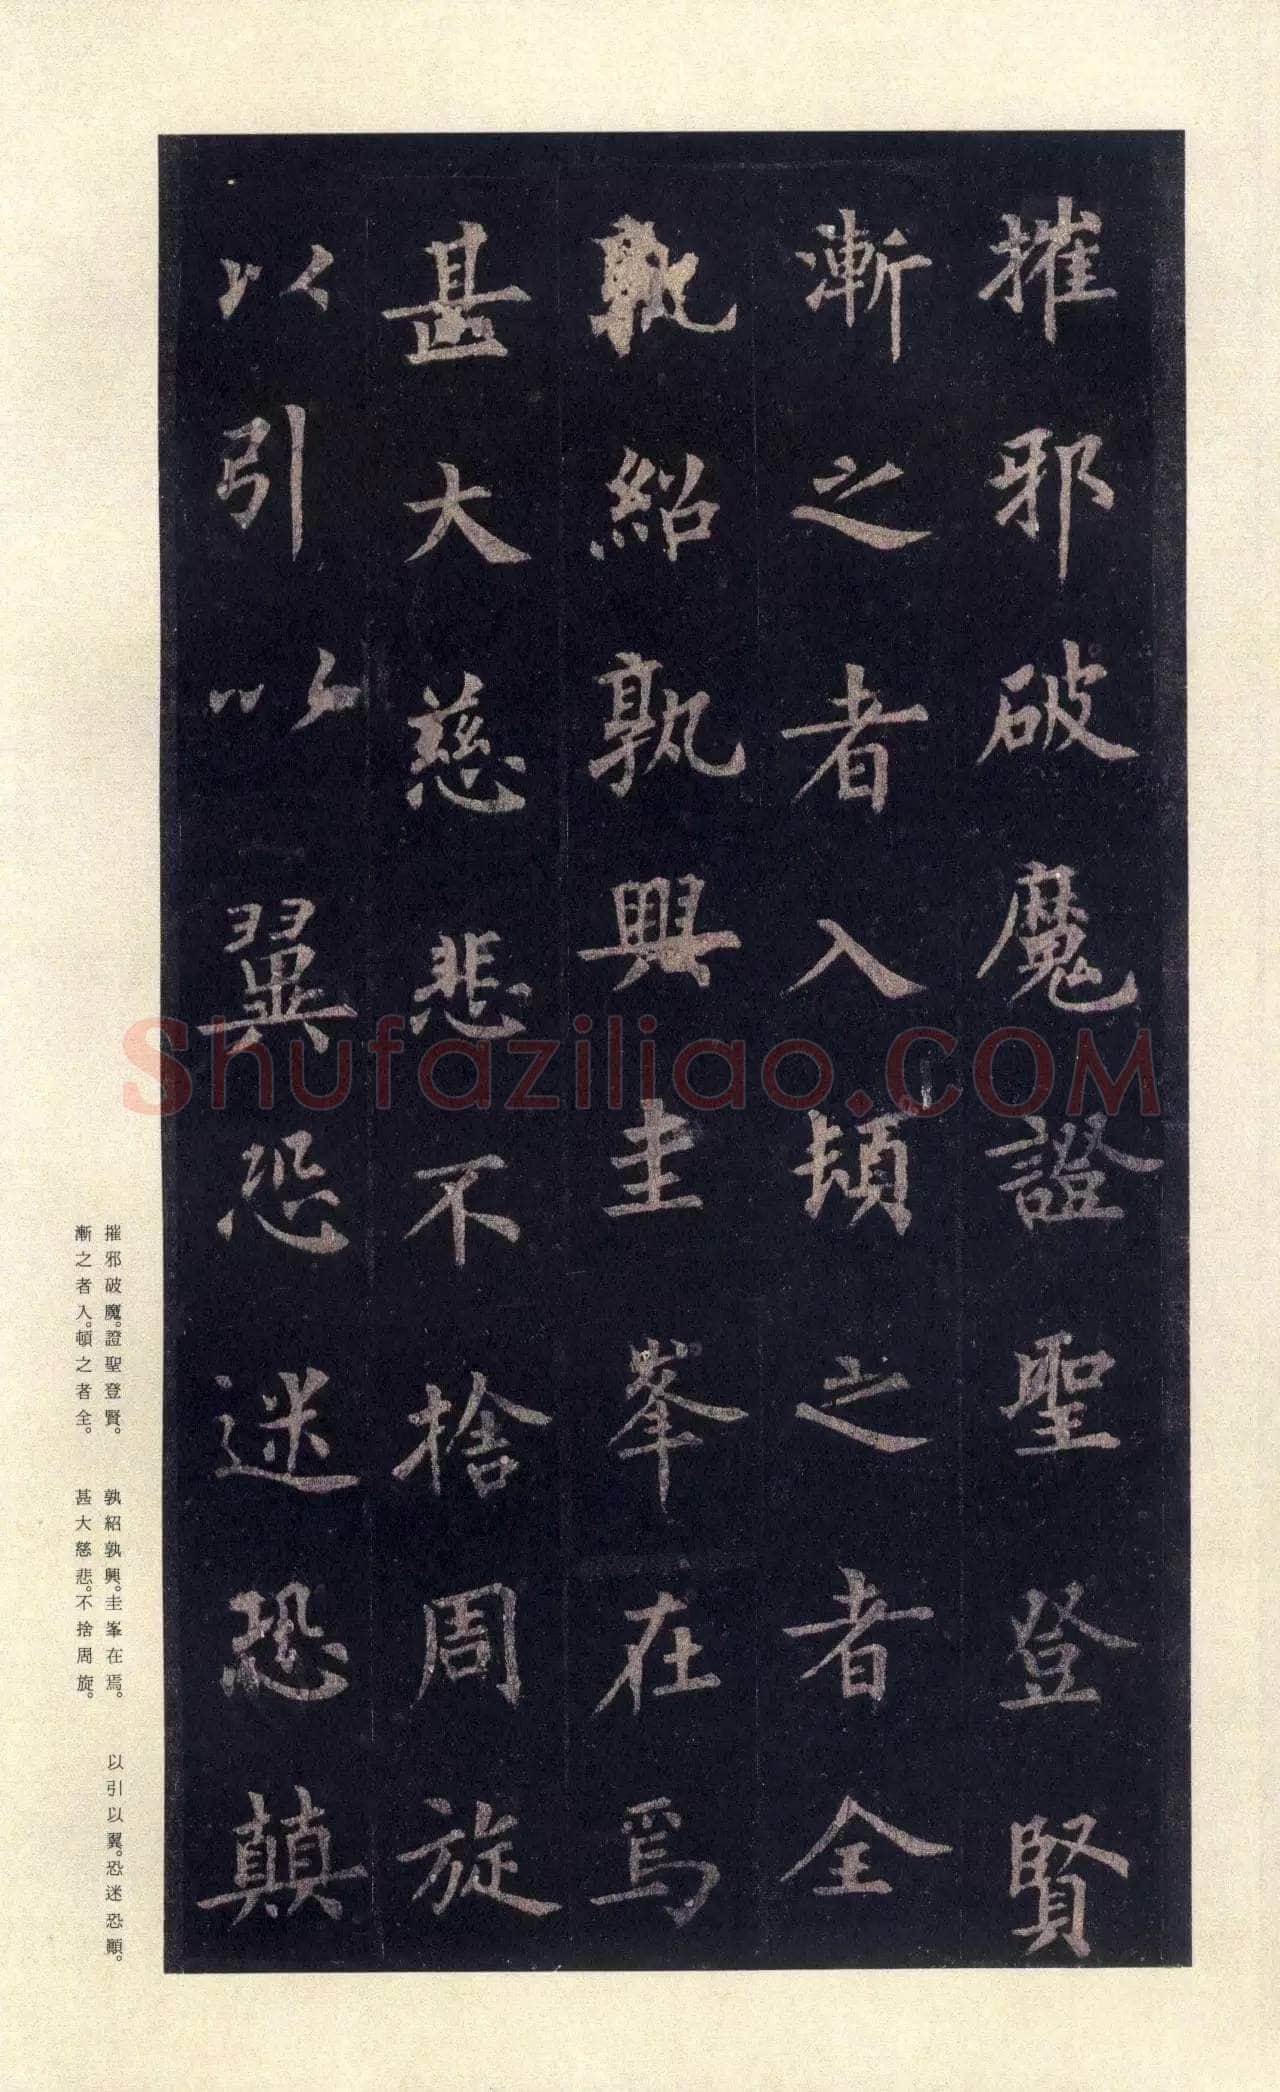 摧邪破魔證聖登賢
漸之者入頓之者全
孰紹孰興圭峯在焉
甚大慈悲不捨周旋
以引以翼恐迷恐顛
摧邪破魔。證聖登賢。 孰紹孰興。圭峯在焉。 以引以翼。恐迷恐顚。
漸之者入。頓之者全。 甚大慈悲。不捨周旋。
Shufaziliao.COM